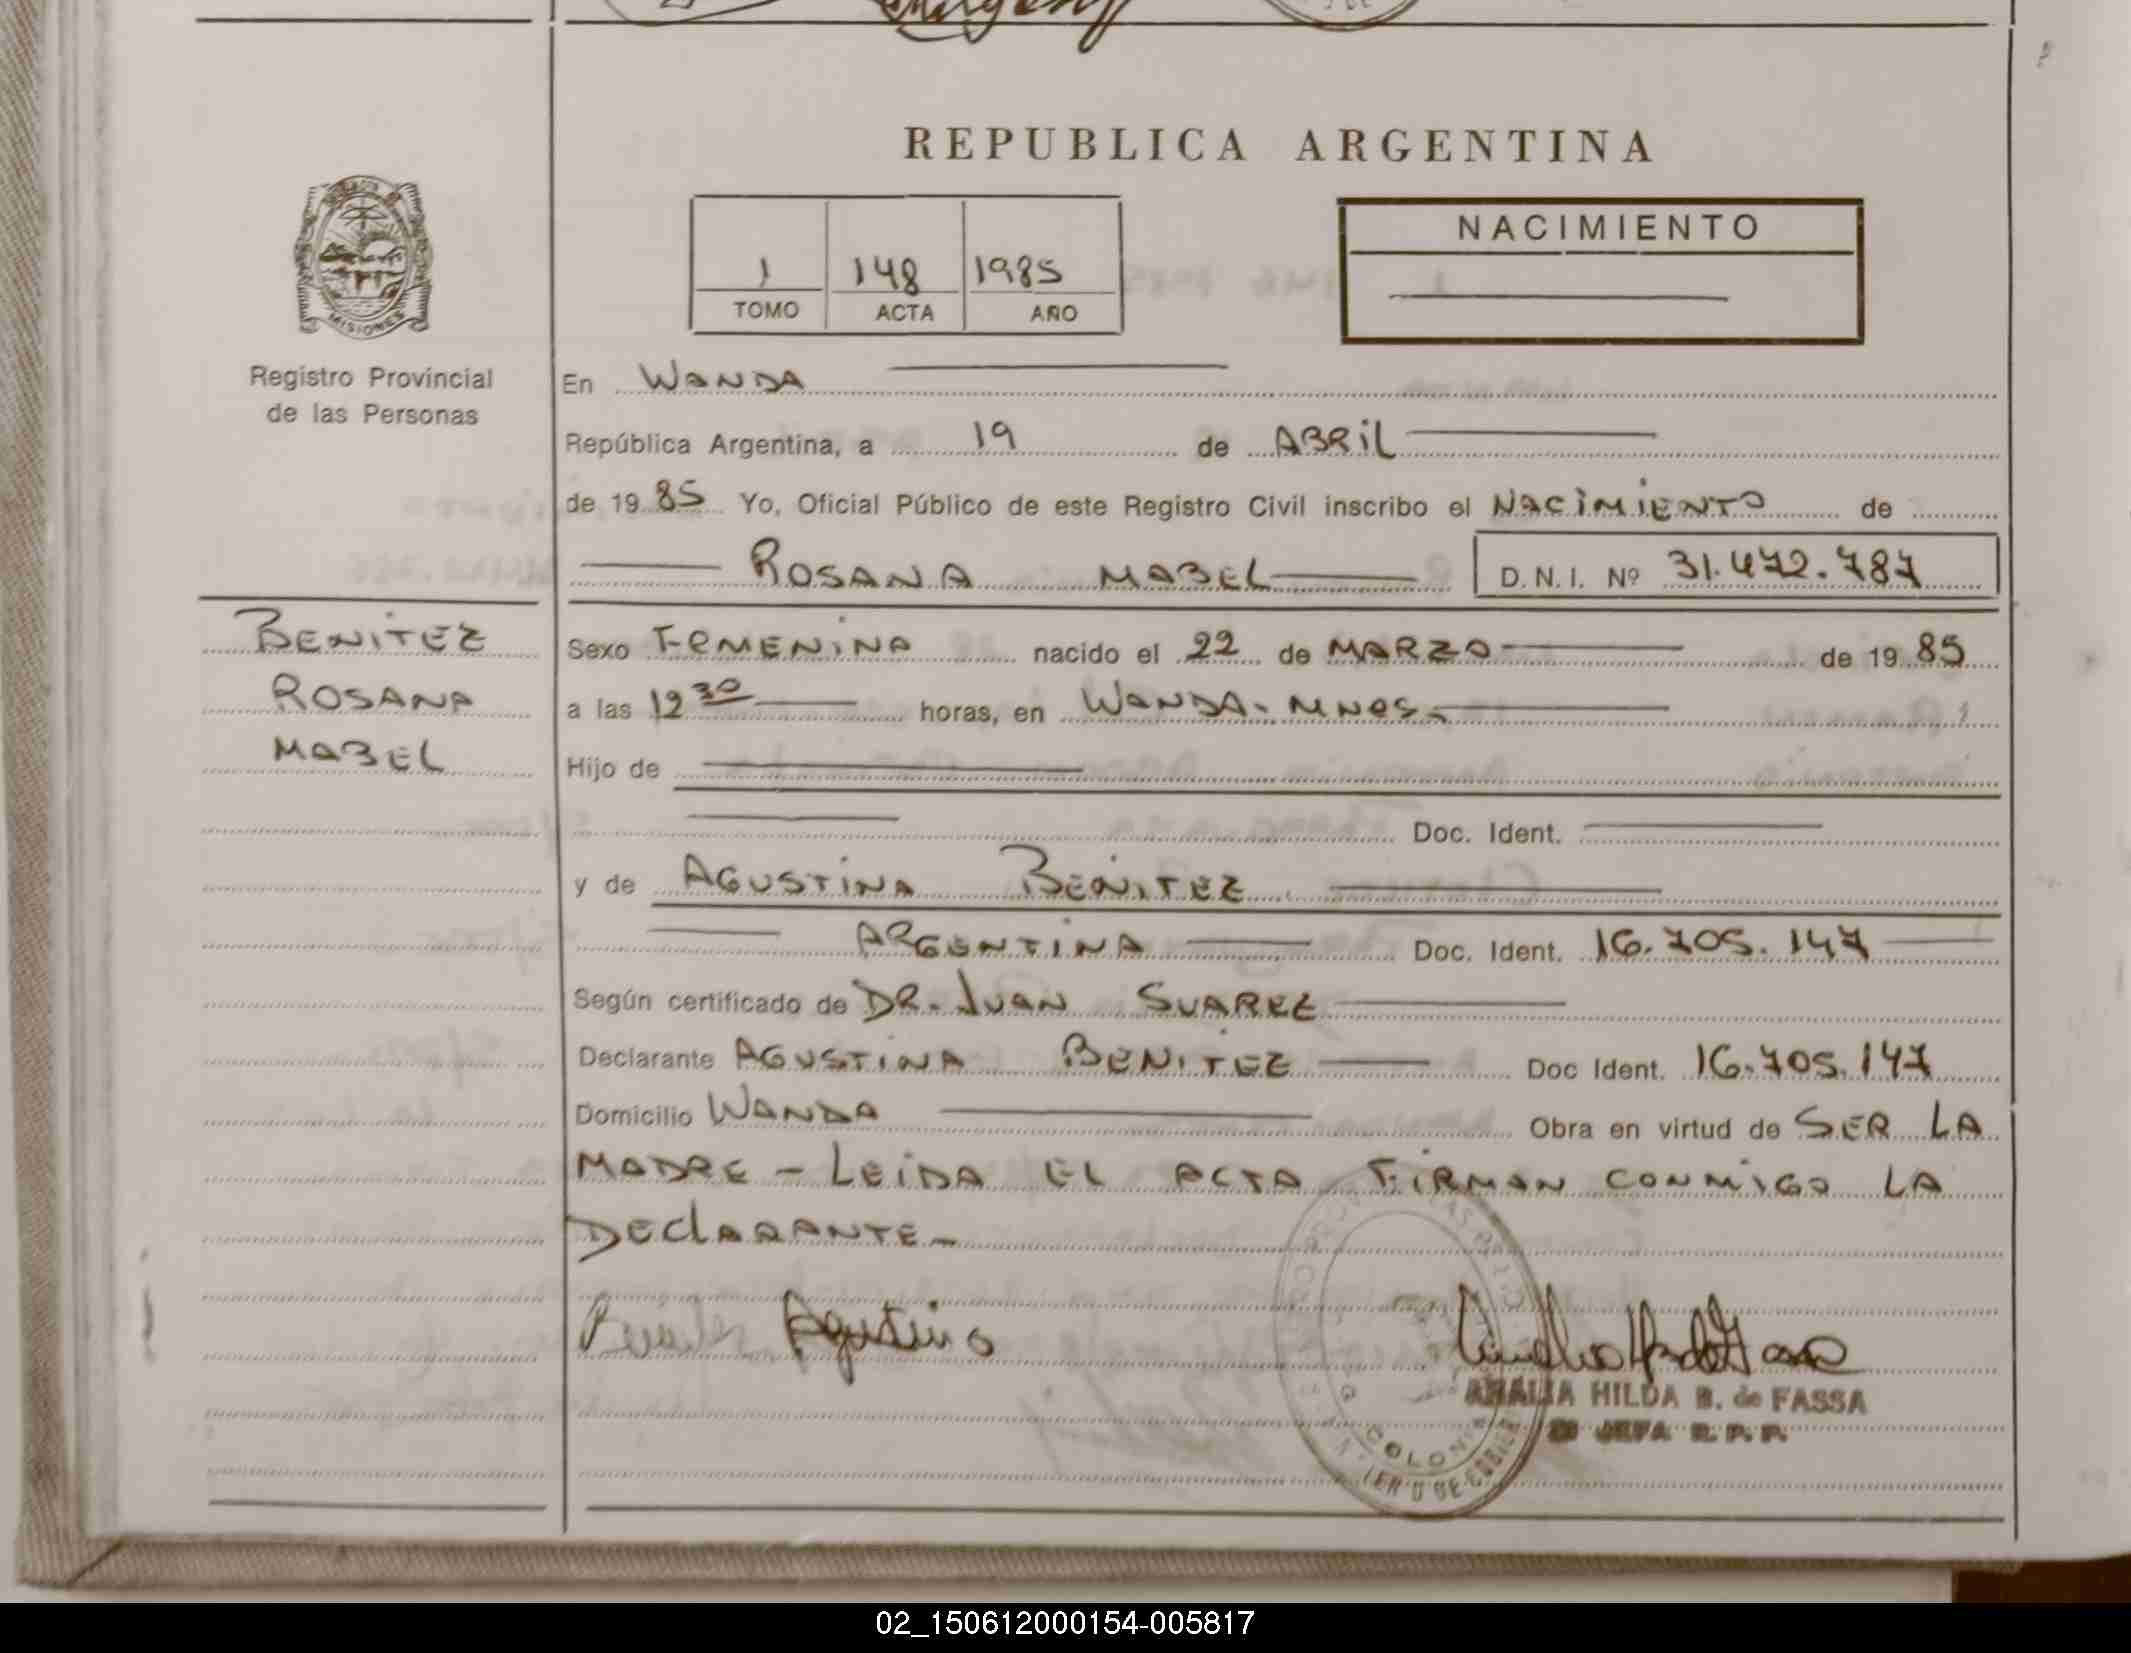 REPUBLICA ARGENTINA
NACIMIENTO
1 148 1985
TOMO ACTA AÑO
MISIONES
Registro Provincial
de las Personas
En WANDA
República Argentina, a 19 de ABRIL
de 19 85 Yo, Oficial Público de este Registro Civil inscribo el NACIMIENTO de
ROSANA MABEL D.N.I. Nº 31.472.787
BENITEZ
ROSANA
MABEL
Sexo FEMENINA nacido el 22 de MARZO de 19 85
a las 12 30 horas, en WANDA - MNES -
Hijo de
Doc. Ident.
y de AGUSTINA BENITEZ
ARGENTINA Doc. Ident. 16.705.147
Según certificado de DR. JUAN SUAREZ
Declarante AGUSTINA BENITEZ Doc Ident. 16.705.147
Domicilio WANDA Obra en virtud de SER LA
MADRE - LEIDA EL ACTA FIRMAN CONMIGO LA
DECLARANTE -
Benitez Agustina
ANALIA HILDA B. de FASSA
JEFA R. P. P.
COLONIA
02_150612000154-005817